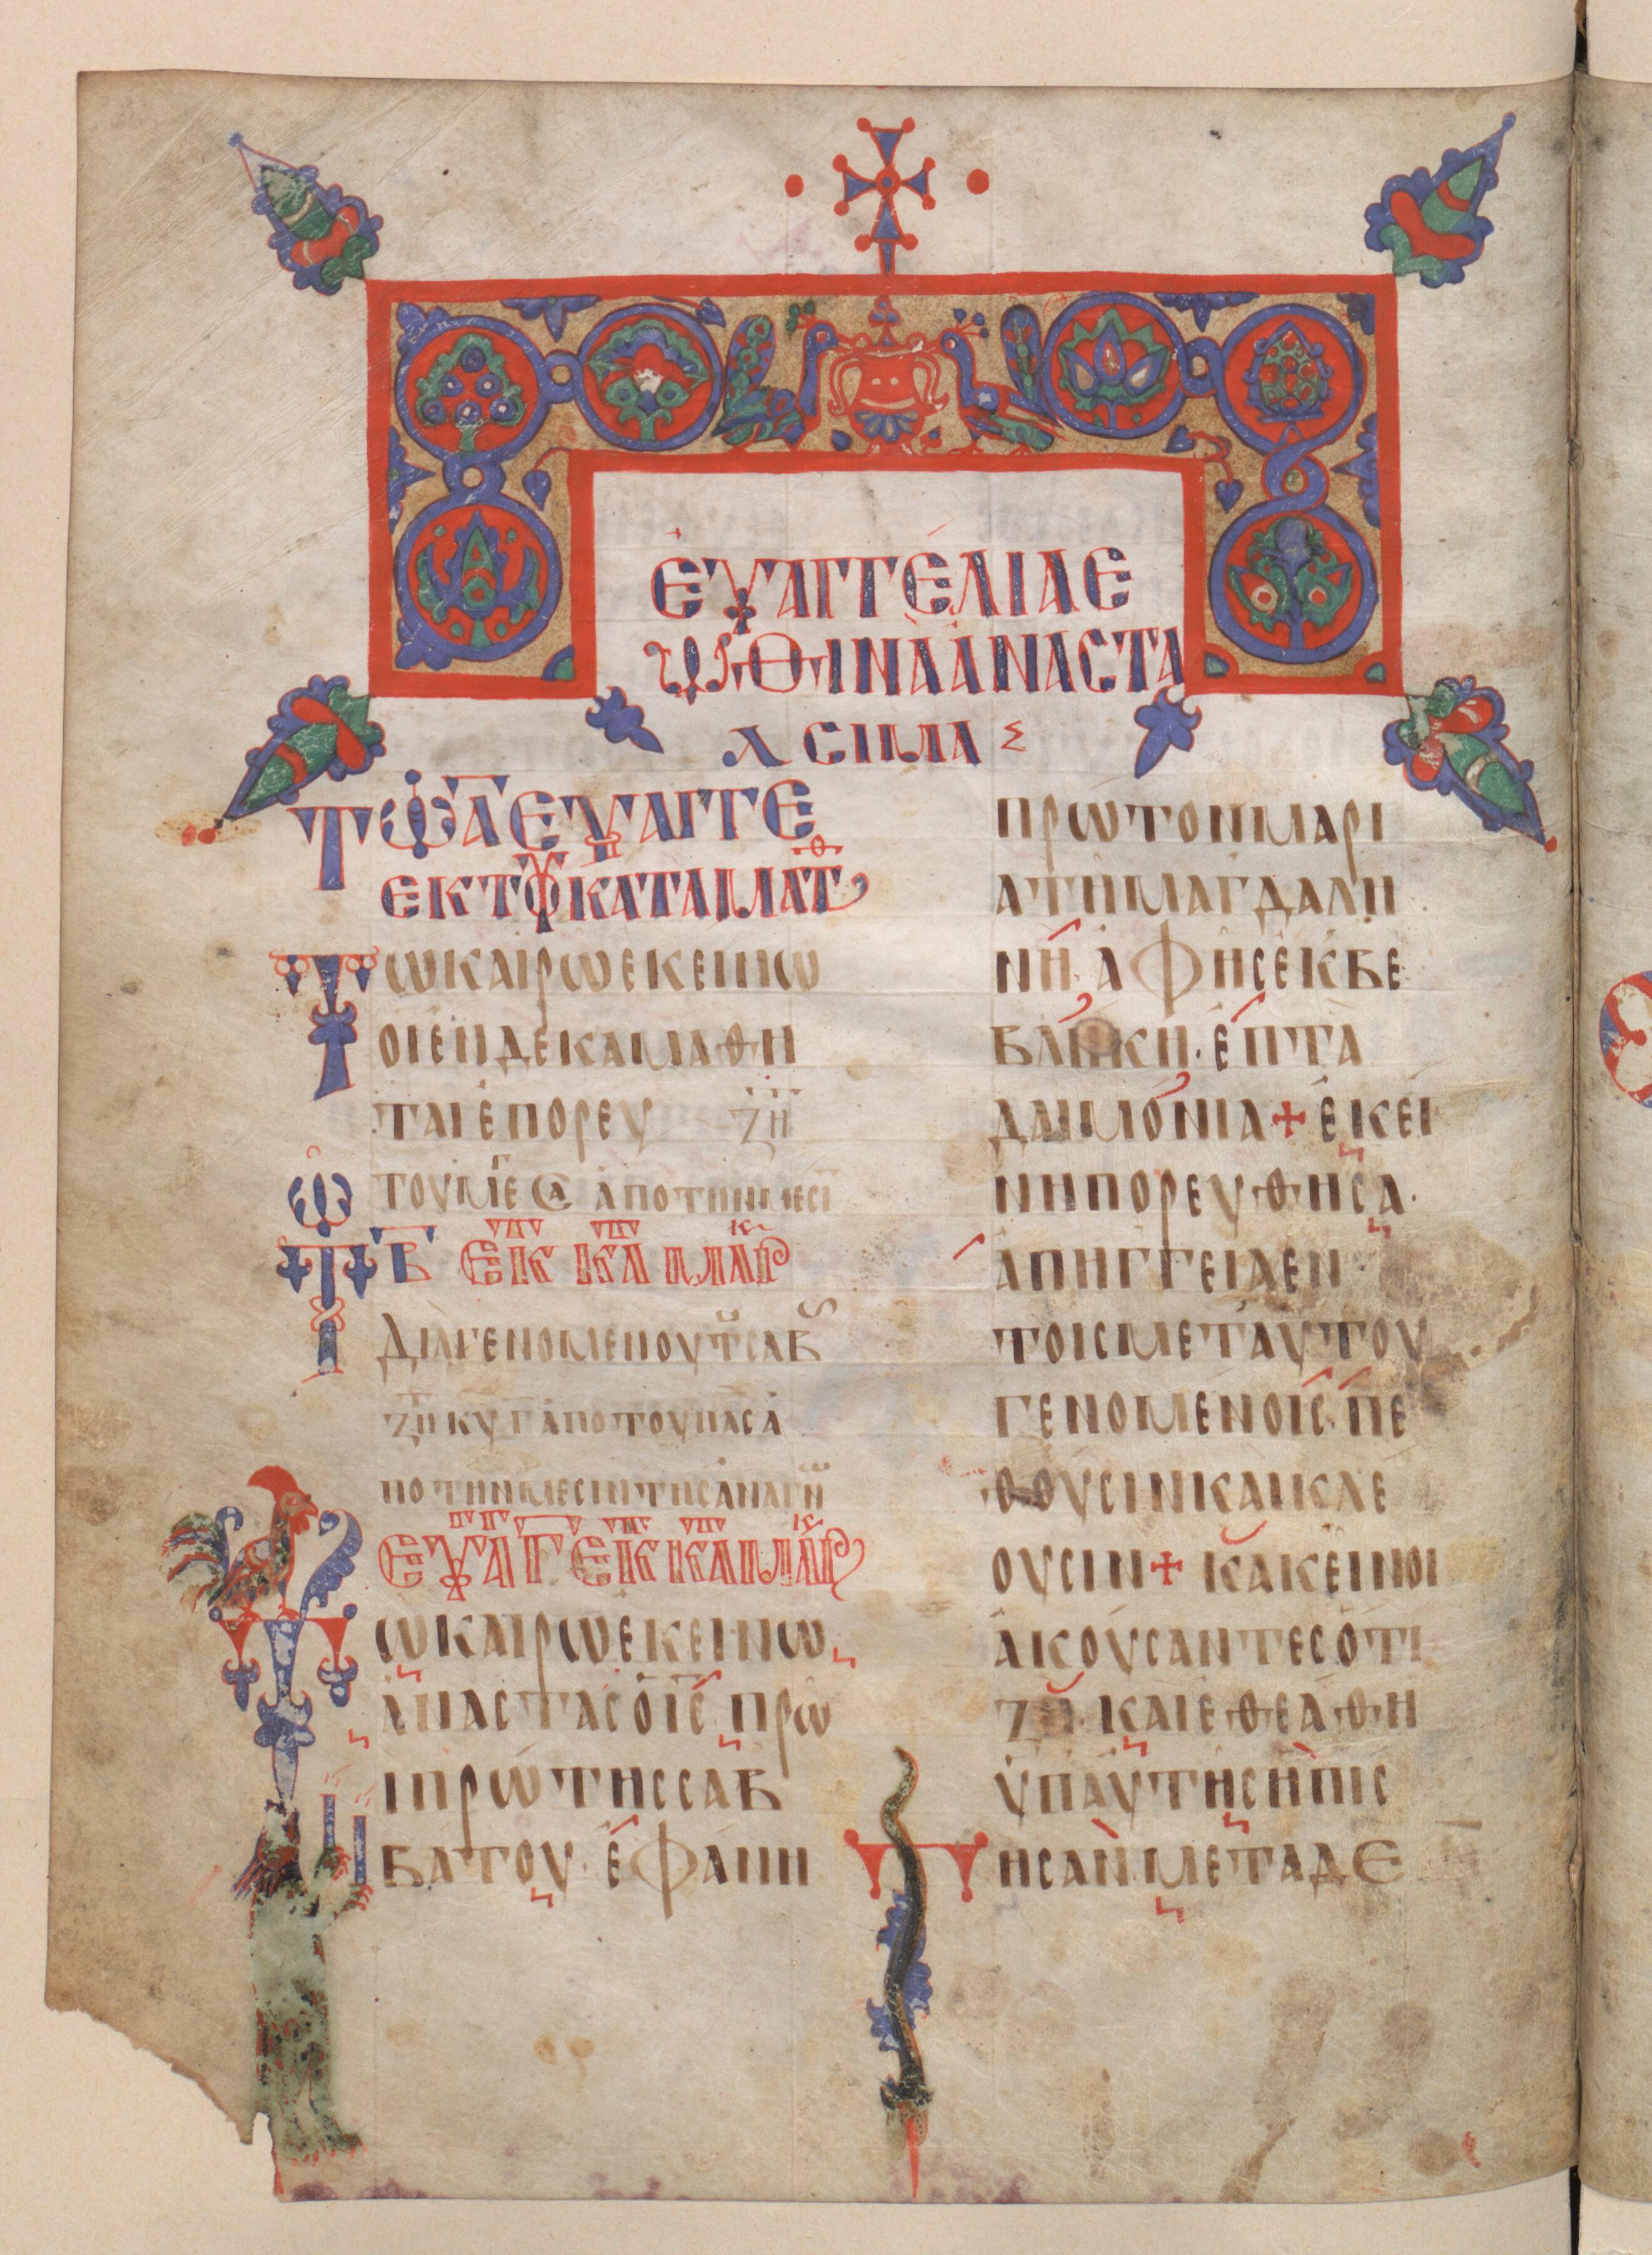 ΕΥΑΓΓΕΛΙΑ Ε
ΩΘΙΝΑ ΑΝΑΣΤΑ
ϹΙΜΑ
ΤΟ Α ΕΥΑΓΓΕ
ΕΚ ΤΟΥ ΚΑΤΑ ΜΑΤΘ
ΤΩ ΚΑΙΡΩ ΕΚΕΙΝΩ
ΟΙ ΕΝΔΕΚΑ ΜΑΘΗ
ΤΑΙ ΕΠΟΡΕΥ ΖΗ
ΑΠΟ ΤΗΝ ΜΕϹΙ
ΤΟ Β ΕΚ ΚΑΤΑ ΜΑΡΚ
ΔΙΑΓΕΝΟΜΕΝΟΥ Τ ϹΑΒ
ΖΗ ΚΥ Γ ΑΠΟ ΤΟΥ ΠΑϹΑ
ΠΟ ΤΗΝ ΜΕϹΙΝ ΤΗϹ ΑΝΑΓΝ
ΕΥΑΓ ΕΚ ΚΑ ΜΑΡΚ
ΤΩ ΚΑΙΡΩ ΕΚΕΙΝΩ
ΑΝΑϹΤΑϹ Ο ΙϹ ΠΡΩ
Ι ΠΡΩΤΗϹ ϹΑΒ
ΒΑΤΟΥ· ΕΦΑΝΗ
ΠΡΩΤΟΝ ΜΑΡΙ
Α ΤΗ ΜΑΓΔΑΛΗ
ΝΗ· ΑΦ ΗϹ ΕΚΒΕ
ΒΛΗΚΗ· ΕΠΤΑ
ΔΑΙΜΟΝΙΑ + ΕΚΕΙ
ΝΗ ΠΟΡΕΥΘΗϹΑ·
ΑΠΗΓΓΕΙΛΕΝ
ΤΟΙϹ ΜΕΤ ΑΥΤΟΥ
ΓΕΝΟΜΕΝΟΙϹ· ΠΕ
ΘΟΥϹΙΝ ΚΑΙ ΚΛΕ
ΟΥϹΙΝ + ΚΑΚΕΙΝΟΙ
ΑΚΟΥϹΑΝΤΕϹ ΟΤΙ
ΖΗ· ΚΑΙ ΕΘΕΑΘΗ
ΥΠ ΑΥΤΗϹ ΗΠΙϹ
ΤΗϹΑΝ· ΜΕΤΑ ΔΕ